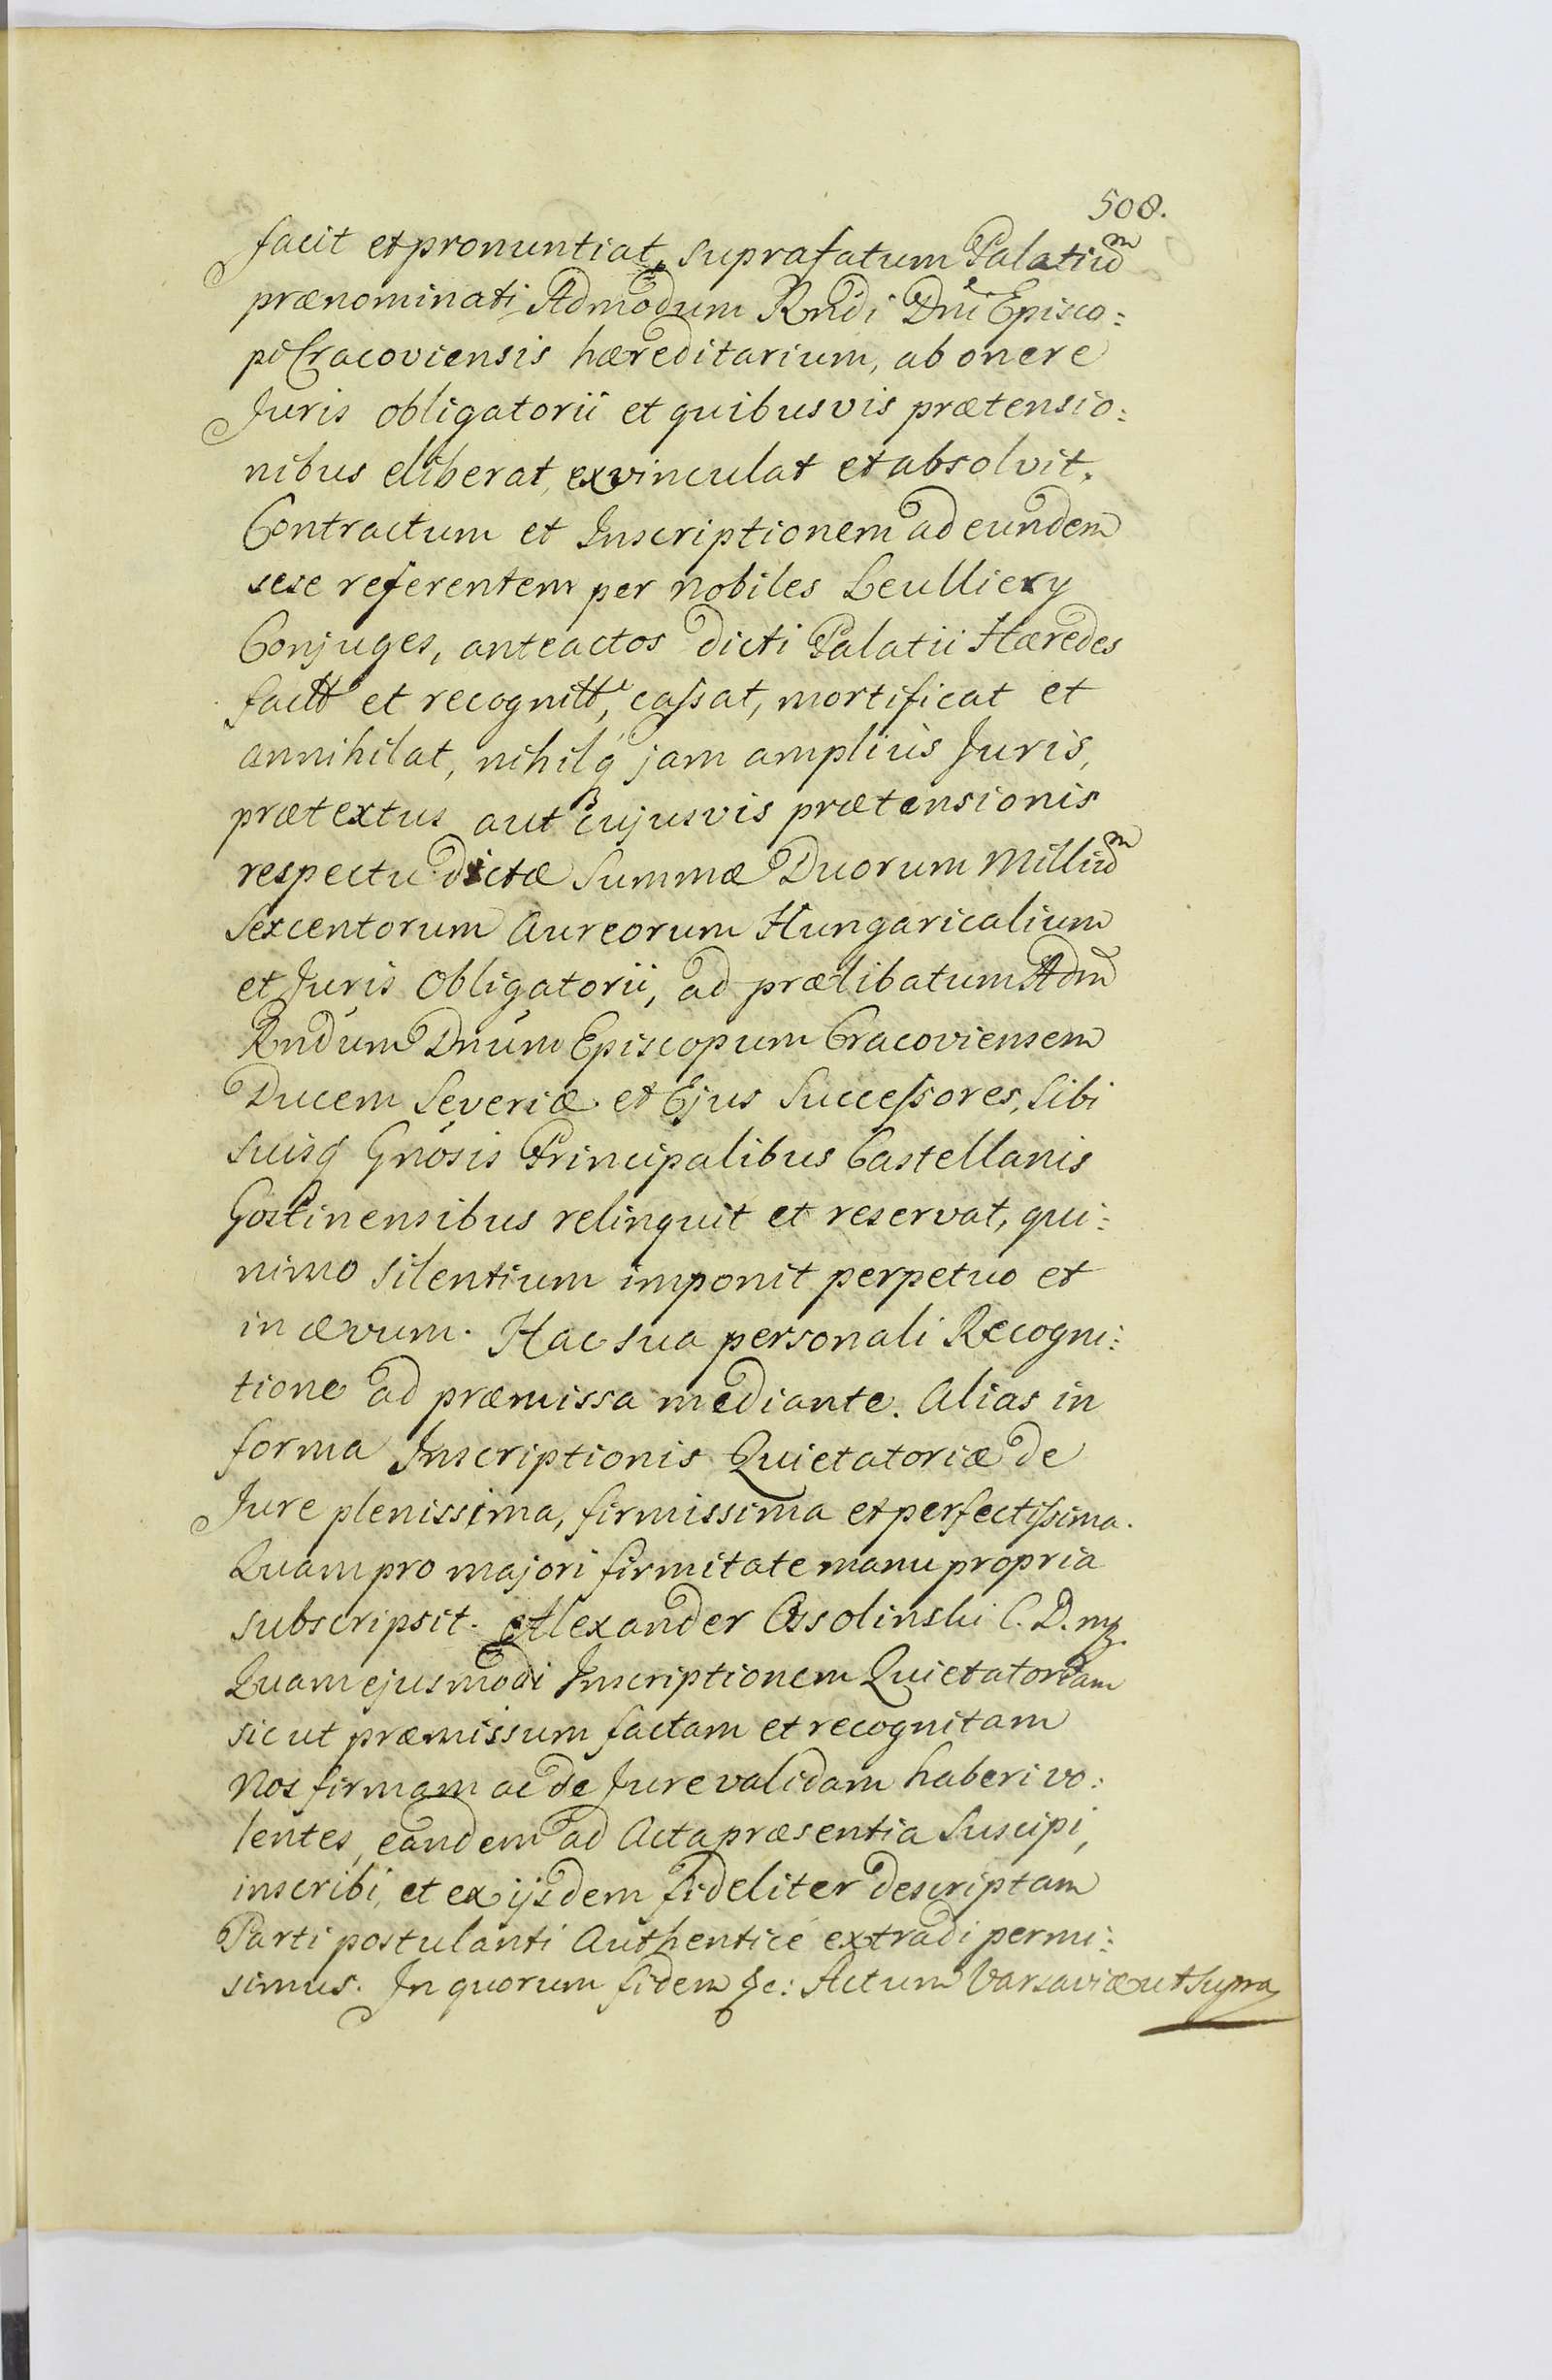 508.
facit et pronuntiat, suprafatum Palatiu͠m
prænominati Admodum Rndi Dni Episco:
pi Cracoviensis hæreditarium, ab onere
Juris obligatorii et quibusvis prætensio:
nibus eliberat, exvinculat et absolvit.
Contractum et Inscriptionem ad eundem
sese referentem per nobiles Leulliery
Conjuges, anteactos dicti Palatii Hæredes
factt et recognitt, cassat, mortificat et
annihilat, nihilq́ jam amplius Juris,
prætextus aut cujusvis prætensionis
respectu dictæ Summæ Duorum Milliu͠m
Sexcentorum Aureorum Hungaricalium
et Juris Obligatorii, ad prælibatum Adm̃
Rndum Dnum Episcopum Cracoviensem
Ducem Severiæ et Ejus Successores, Sibi
suisq́ Gnosis Principalibus Castellanis
Gostinensibus relinquit et reservat, qui:
nimo silentium imponit perpetuo et
in ævum. Hac sua personali Recogni:
tione ad præmissa mediante. Alias in
forma Inscriptionis Quietatoriæ de
Jure plenissima, firmissima et perfectissima.
Quam pro majori firmitate manu propria
subscripsit. Alexander Ossolinski C. D. mp.
Quam ejusmodi Inscriptionem Quietatoriam
sicut præmissum factam et recognitam
Nos firmam ac de Jure validam haberi vo:
lentes, eandem ad Acta præsentia Suscipi,
inscribi, et ex ijsdem fideliter descriptam
Parti postulanti Authentice extradi permi:
simus. In quorum fidem &c: Actum Varsaviæ ut supra